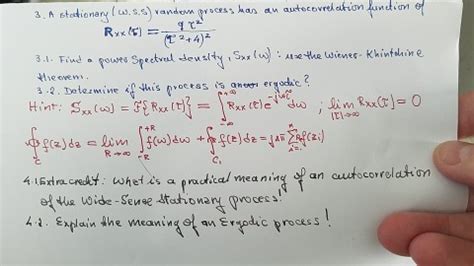 3. A stationary (W.S.S) random process has an autocorrelation function of
R_xx(τ) = 9τ² / (τ²+4)²
3.1. Find a power Spectral density, S_xx(ω) : use the Wiener-Khintchine
theorem.
3.2. Determine if this process is ergodic?
Hint: S_xx(ω) = F{R_xx(τ)} = ∫_{-∞}^{+∞} R_xx(τ) e^{-jωτ} dω ; lim_{|τ|→∞} R_xx(τ) = 0
∮_C f(z)dz = lim_{R→∞} ∫_{-R}^{+R} f(ω)dω + ∮_{C₁} f(z)dz = j2π Σ_{i=1}^{n} f(z_i)
4.1 Extra credit: What is a practical meaning of an autocorrelation
of the Wide-Sense Stationary process!
4.2. Explain the meaning of an Ergodic process!